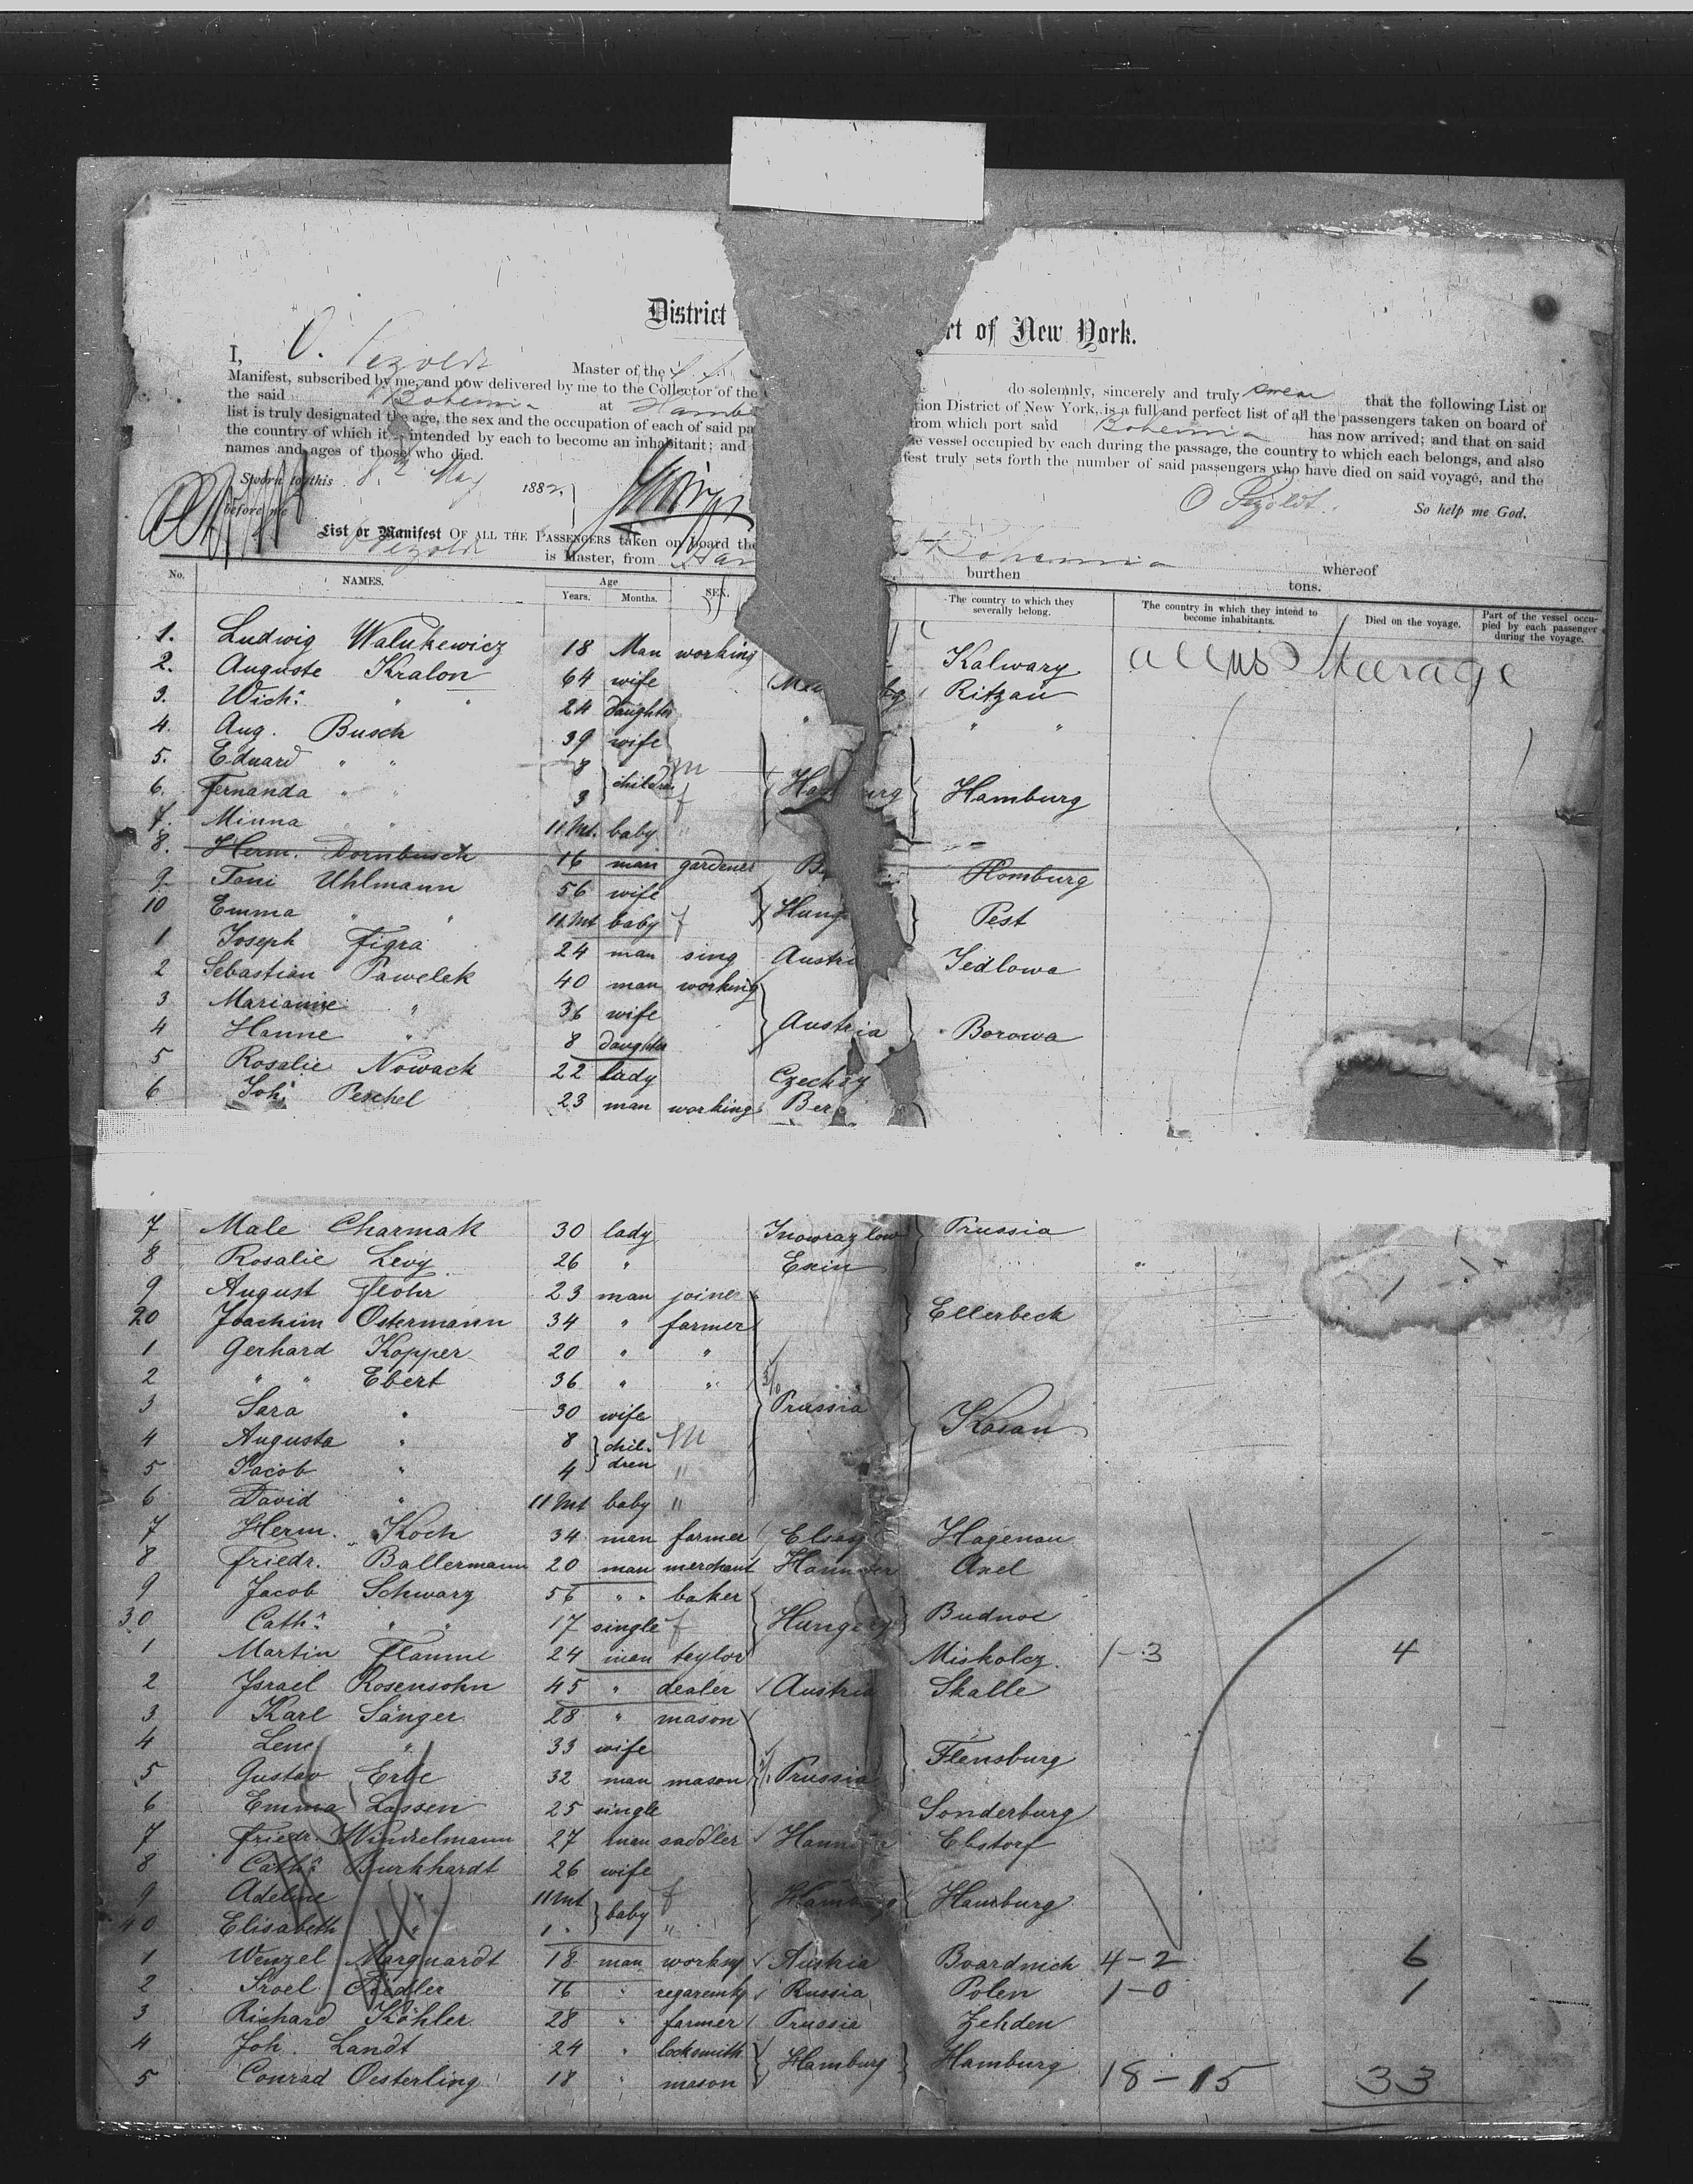 District
rt of New York.
I, O. Pezoldt Master of the S. S. do solemnly, sincerely and truly swear that the following List or
Manifest, subscribed by me, and now delivered by me to the Collector of the tion District of New York, is a full and perfect list of all the passengers taken on board of
the said Bohemia at Hambu from which port said Bohemia has now arrived; and that on said
list is truly designated the age, the sex and the occupation of each of said pa e vessel occupied by each during the passage, the country to which each belongs, and also
the country of which it is intended by each to become an inhabitant; and fest truly sets forth the number of said passengers who have died on said voyage, and the
names and ages of those who died.
Sworn to this 8 May 1882. O Pezoldt. So help me God.
before me
List or Manifest OF ALL THE PASSENGERS taken on board the Bohemia whereof
Pezoldt is Master, from Ham burthen tons.
No. NAMES. Age Years. Months. SEX. The country to which they severally belong. The country in which they intend to become inhabitants. Died on the voyage. Part of the vessel occupied by each passenger during the voyage.
1. Ludwig Walukewicz 18 Man working Kalwary all US Steerage
2. Auguste Kralon 64 wife Me bg Ritzau
3. Wich: " " 24 daughter " " "
4. Aug. Busch 39 wife
5. Eduard " " 8 children m Ha urg Hamburg
6. Fernanda " " 3 f
7. Minna " " 11 Mt. baby "
8. Herm. Dornbusch 16 man gardener B Homburg
9 Toni Uhlmann 56 wife Hung Pest
10 Emma " " 11 Mt baby f
1 Joseph Figra 24 man sing Austri Jedlowa
2 Sebastian Pawelek 40 man working
3 Marianne " 36 wife Austria Borowa
4 Hanne " 8 daughter
5 Rosalie Nowack 22 lady Czechoy
6 Joh: Peschel 23 man working Ber
7 Male Charmak 30 lady Inowrazlow Prussia
8 Rosalie Levy 26 " Exin "
9 August Flohr 23 man joiner
20 Joachim Ostermann 34 " farmer Ellerbeck
1 Gerhard Kopper 20 " "
2 " " Ebert 36 " " 3/0 Prussia
3 Sara " 30 wife Kosan
4 Augusta " 8 children M
5 Jacob " 4 "
6 David " 11 Mt baby "
7 Herm. Koch 34 man farmer Elsas Hagenau
8 Friedr. Ballermann 20 man merchant Hannover Axel
9 Jacob Schwarz 56 " " baker Hungery Budnoc
30 Cath: " " 17 single f
1 Martin Flamm 24 man teylor Miskolcz 1-3 4
2 Israel Rosensohn 45 " dealer Austria Skalle
3 Karl Sänger 28 " mason
4 Lene " 33 wife Flensburg
5 Gustav Erbe 32 man mason Prussia
6 Emma Lassen 25 single Sonderburg
7 Friedr. Winckelmann 27 man saddler Hannover Ebstorf
8 Cath: Burkhardt 26 wife
9 Adeline " 11 Mt baby f Hamburg Hamburg
40 Elisabeth " 1 "
1 Wenzel Marquardt 18 man workng Austria Boardnich 4-2 6
2 Sroel Fiedler 16 " Russia Polen 1-0 1
3 Richard Köhler 28 " farmer Prussia Zehden
4 Joh. Landt 24 " locksmith Hamburg Hamburg
5 Conrad Oesterling 18 " mason 18-15 33